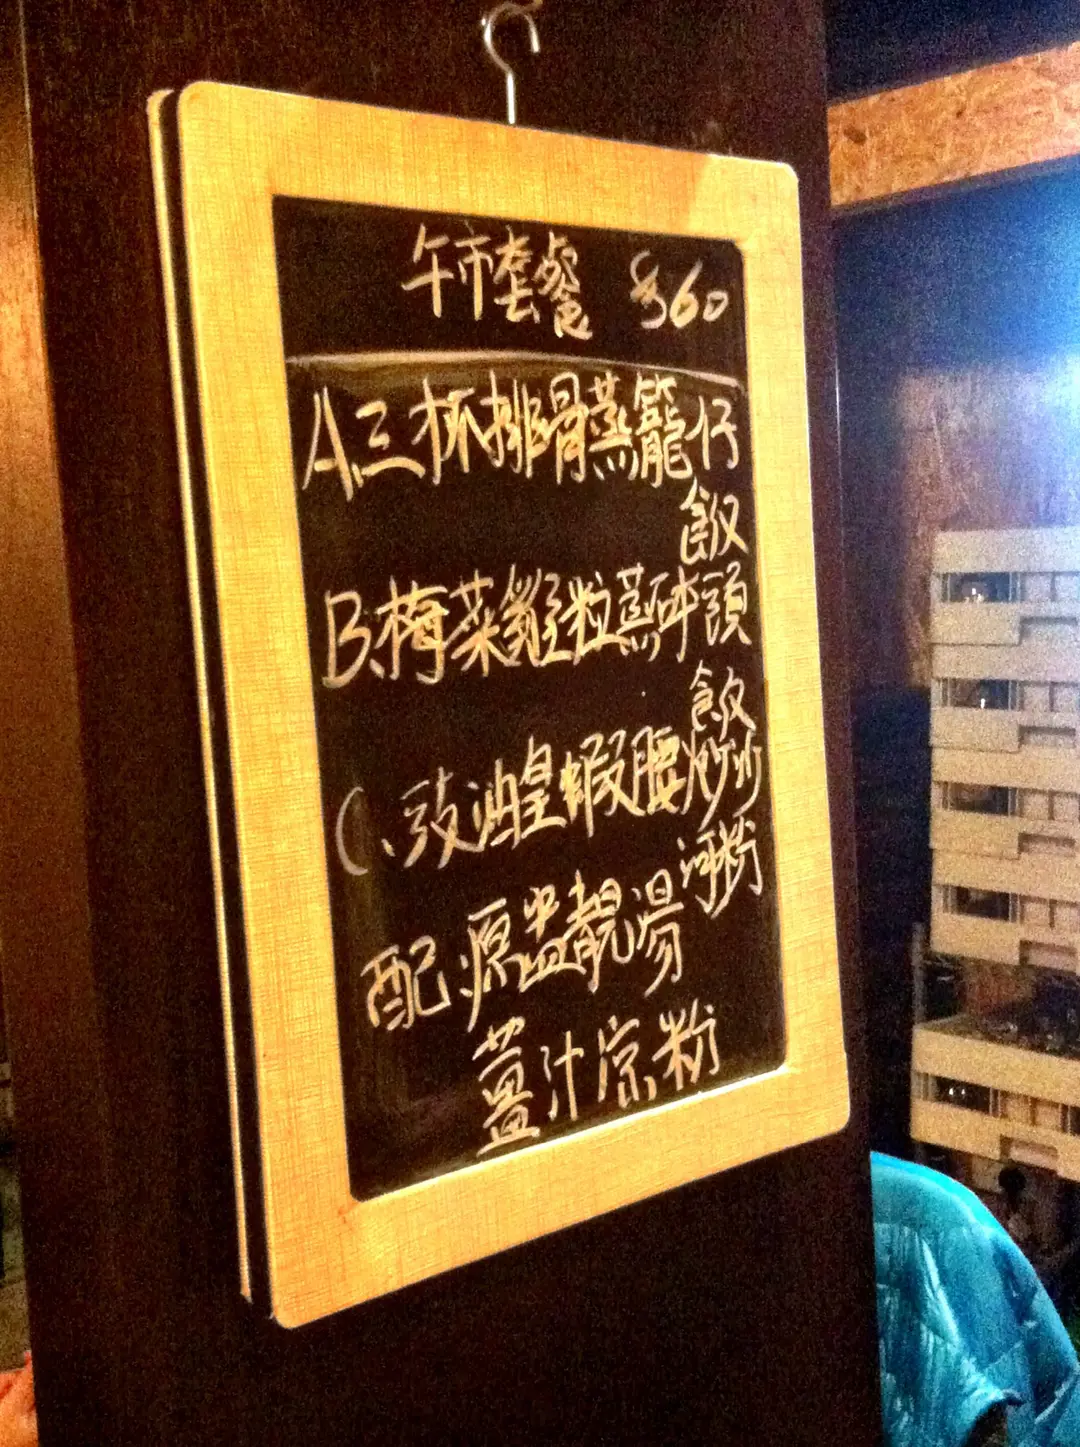 午市套餐 $60
A.三杯排骨蒸籠仔
飯
B.梅菜雞粒蒸砵頭
飯
C.豉油皇蝦腰炒沙
河粉
配.原盅靚湯
薑汁凉粉